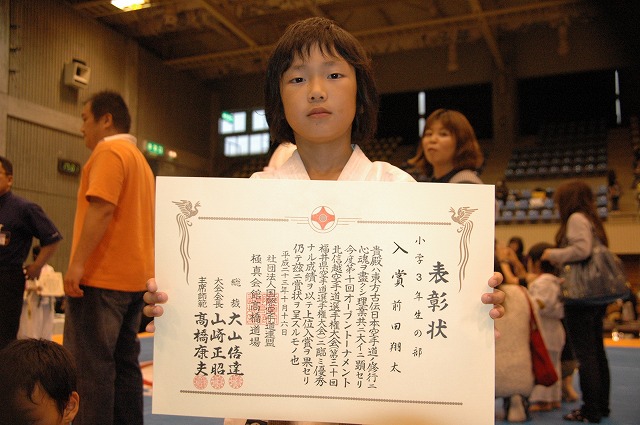 表彰状
小学3年生の部
入賞 前田翔太
貴殿ハ漢方古伝日本空手道ノ修行ニ
心魂ヲ盡クシ理業共ニ大イニ顕セリ
今度第十回オープントーナメント
北信越空手道選手権大会第三十回
福井県空手道選手権大会ニ臨ミ優秀
ナル成績ヲ以ッテ上位入賞ヲ果セリ
仍テ茲ニ賞状ヲ呈スルモノ也
平成二十三年十月十六日
社団法人国際空手道連盟
極真会館髙橋道場
総裁 大山倍達
大会会長 山崎正昭
主席師範 髙橋康夫